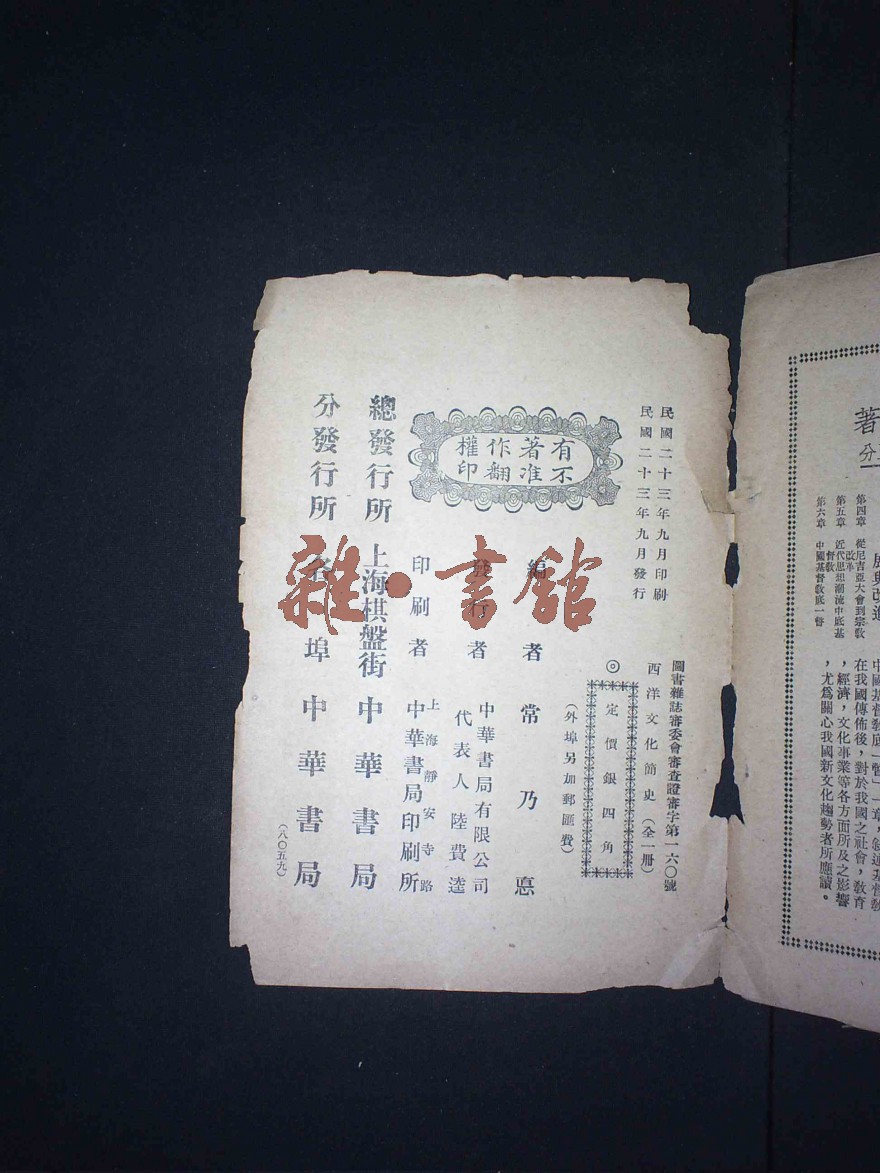 著
分
第四章　從尼吉亞大會到宗教改革
第五章　近代思想潮流中底基督教
第六章　中國基督教底一瞥
在我國傳佈後，對於我國之社會，教育
，經濟，文化事業等各方面所及之影響
，尤爲關心我國新文化趨勢者所應讀。
民國二十三年九月印刷
民國二十三年九月發行
圖書雜誌審委會審查證審字第一六〇號
西洋文化簡史（全一冊）
◎定價銀四角
（外埠另加郵匯費）
有著作權
不准翻印
編者　常乃惪
發行者　中華書局有限公司
代表人　陸費逵
印刷者　上海靜安寺路
中華書局印刷所
總發行所　上海棋盤街　中華書局
分發行所　各埠　中華書局
（八〇五九）
雜·書館